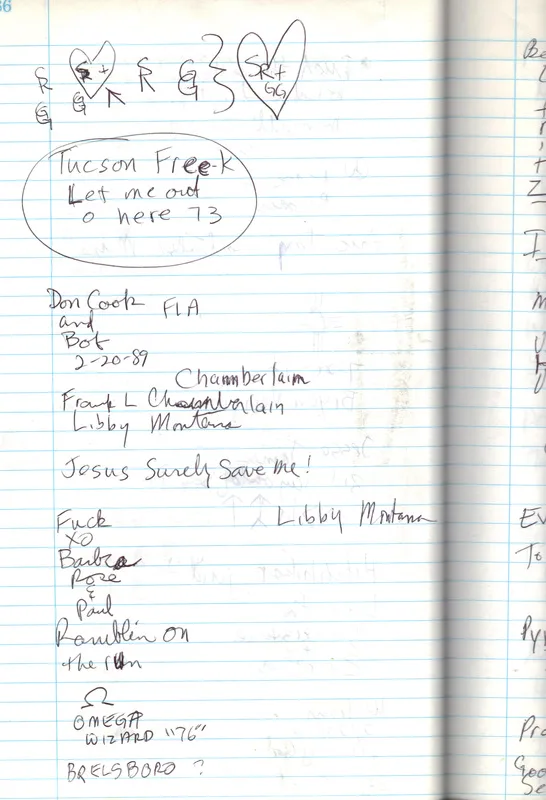 66
SR SR + SR GG } SR+
GG GG GG
Tucson Free-K
Let me out
o here 73
Don Cook FLA
and
Bot
2-20-89
Chamberlaim
Frank L Chamberlain
Libby Montana
Josus Surely Save me!
Fuck Libby Montana
XO
Barbra
Rose
&
Paul
Ramblin on
the run
Ω
OMEGA
WIZARD "76"
BRELSBORO ?